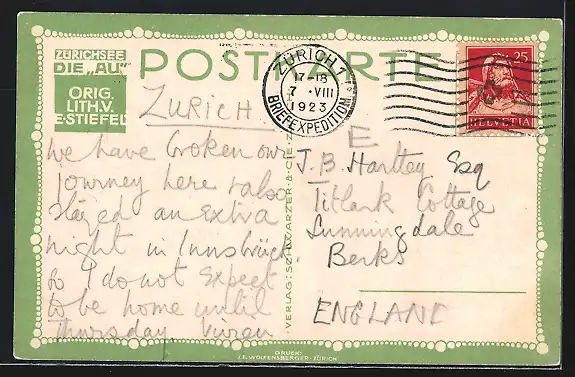 ZÜRICHSEE
DIE „AU"
ORIG.
LITH. V.
E·STIEFEL
POSTKARTE
ZÜRICH 1
17-18
7 · VIII
1923
BRIEFEXPEDITION
25
HELVETIA
ZURICH
We have broken our
journey here & also
stayed an extra
night in Innsbrück
so I do not expect
to be home until
Thursday Vivien
VERLAG: SCHWARZER & CIE. Z
E
J. B Hartley Esq
Titlark Cottage
Sunningdale
Berks
ENGLAND
DRUCK:
J.E. WOLFENSBERGER · ZÜRICH